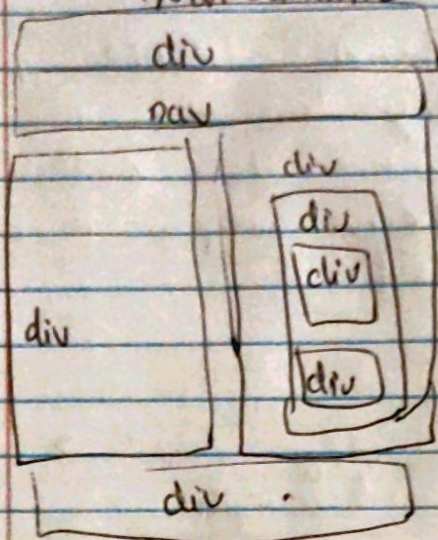 div
nav
div
div
div
div
div
div